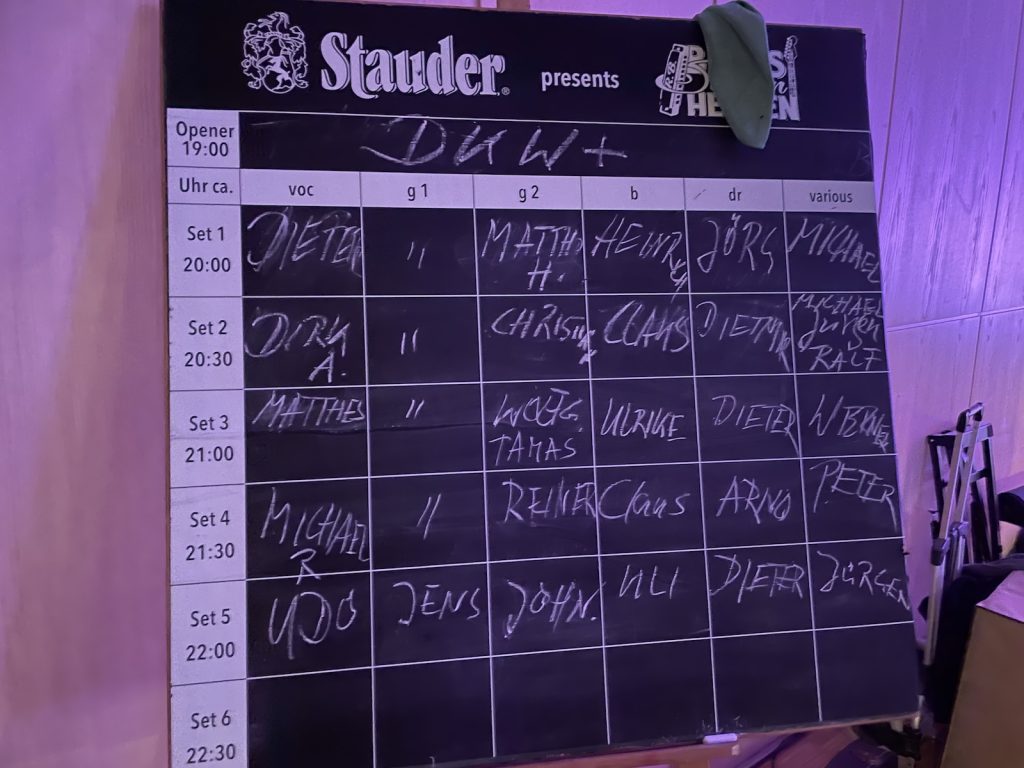 Stauder®
presents
Opener
19:00
DKW+
Uhr ca.
voc
g 1
g 2
b
dr
various
Set 1
20:00
DIETER
"
MATTH
H.
JÖRG
MICHAEL
Set 2
20:30
DIRK
A.
"
CLAUS
MICHAEL
Jürgen
RALF
Set 3
21:00
MATTHES
"
WOLFG.
TAMAS
ULRIKE
DIETER
WERNER
Set 4
21:30
MICHAEL
R
"
REINER
Claus
ARNO
PETER
Set 5
22:00
UDO
JENS
JOHN.
ULI
DIETER
JÜRGEN
Set 6
22:30